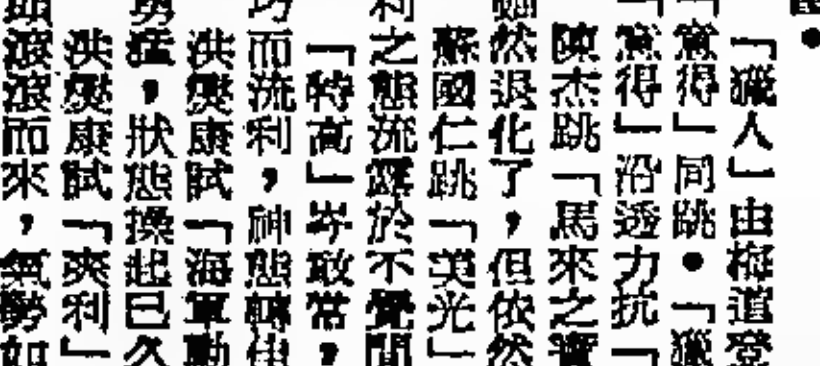 ●
「獵人」由梅道登
「賞得」同跳●「獵
「賞得」沿透力抗「
陳杰跳「馬來之寶
然退化了,但依然
蘇國仁跳「美光」
利之態流露於不覺間
「特高」岑敢常,
而流利,神態轉佳
洪爕康試「海軍動
勇猛,狀態操起已久
洪爕康試「爽利」
滾滾而來,氣勢如